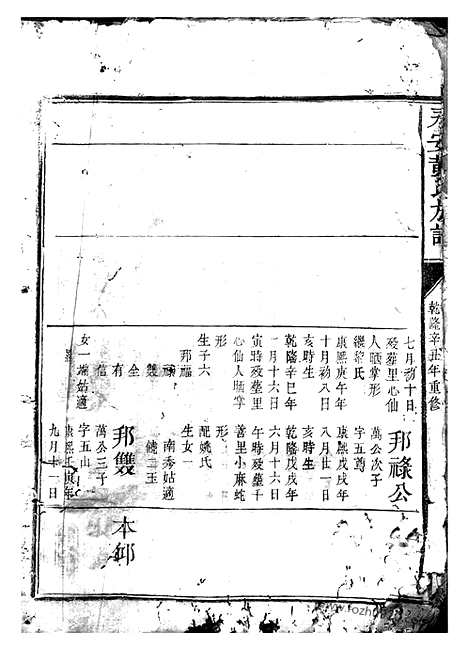 安黃氏族譜
乾隆辛丑年重修
七月初十日
歿葬里心仙
人晒掌形
繼黎氏
康熙庚午年
十月初八日
亥時生
乾隆辛巳年
一月十六日
寅時歿葬里
心仙人晒掌
形
生子六
邦福
祿
雙
全
有
信
女一瑞姑適
邦祿公
萬公次子
字五尊
康熙戊戌年
八月廿一日
亥時生
乾隆戊戌年
六月十六日
午時歿葬千
善里小麻蛇
形
配姚氏
生女一
南秀姑適
饒二玉
邦雙
萬公三子
字五山
康熙壬寅年
九月十一日
本邨